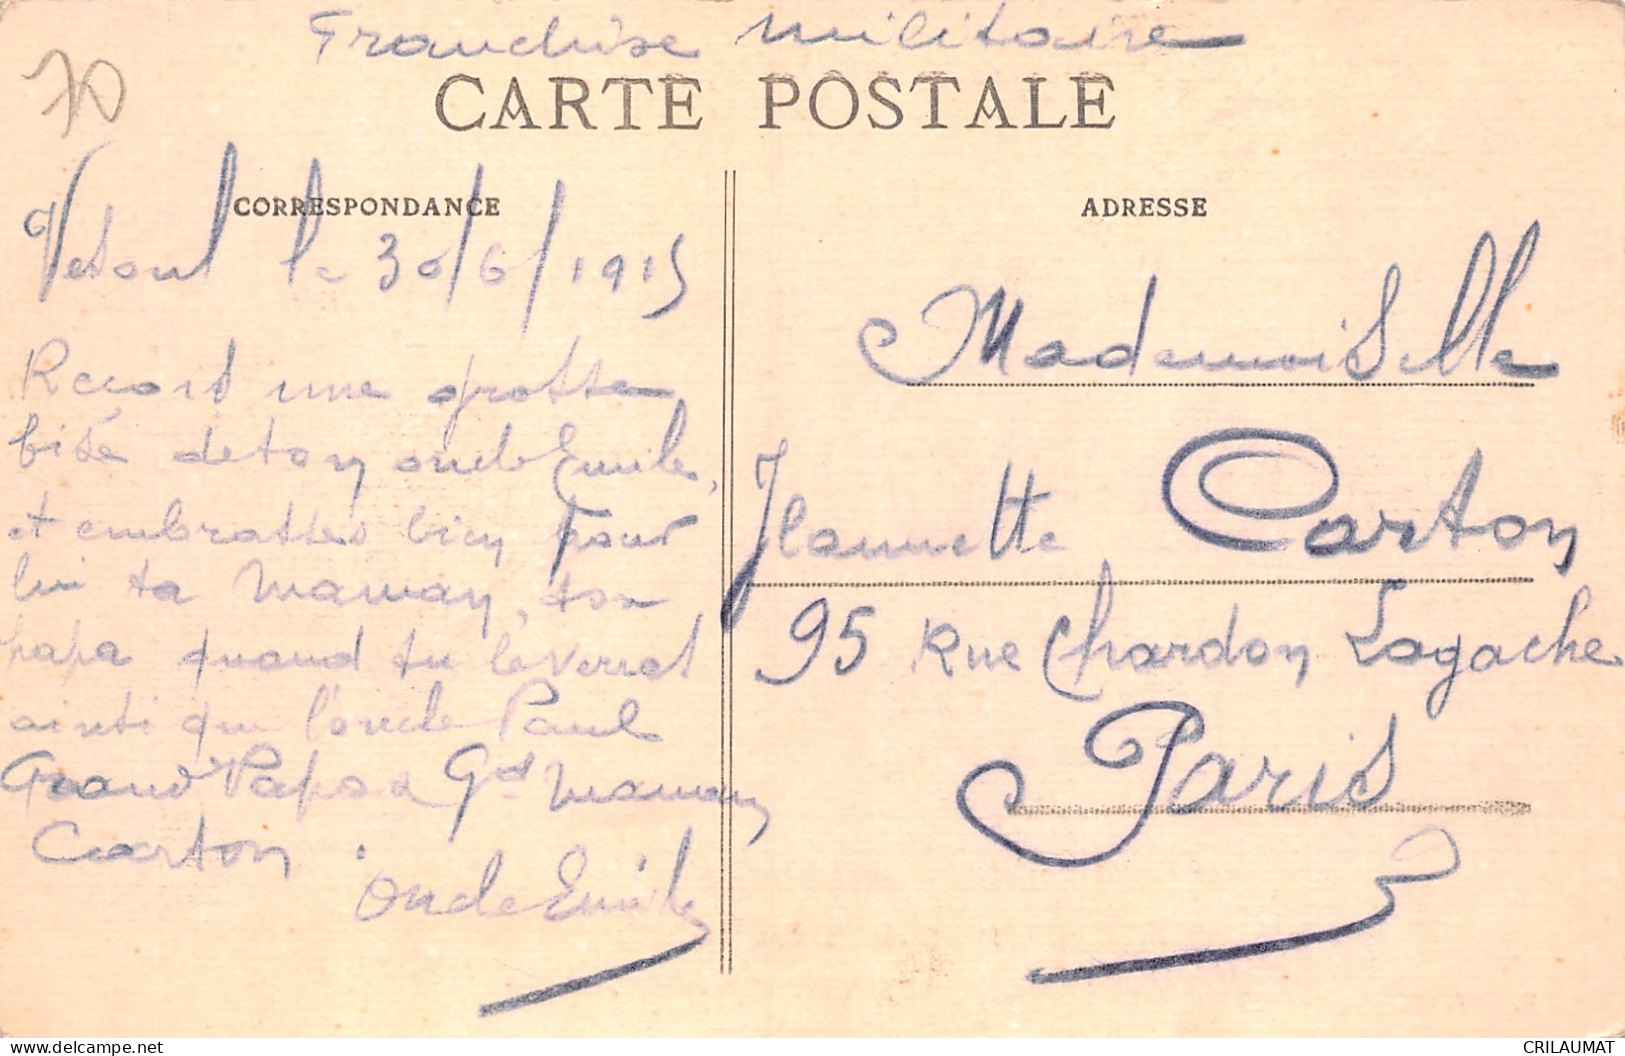 Franchise militaire
70
CARTE POSTALE
CORRESPONDANCE
Vesoul le 30/6/1915
Recois une grosse
bise de ton oncle Emile,
et embrasses bien pour
lui ta maman, ton
papa quand tu le verras
ainsi que l'oncle Paul
Grand Papa &  Gd maman
Carton.
Oncle Emile
ADRESSE
Mademoiselle
Jeannette Carton
95 Rue Chardon Lagache
Paris
CRILAUMAT